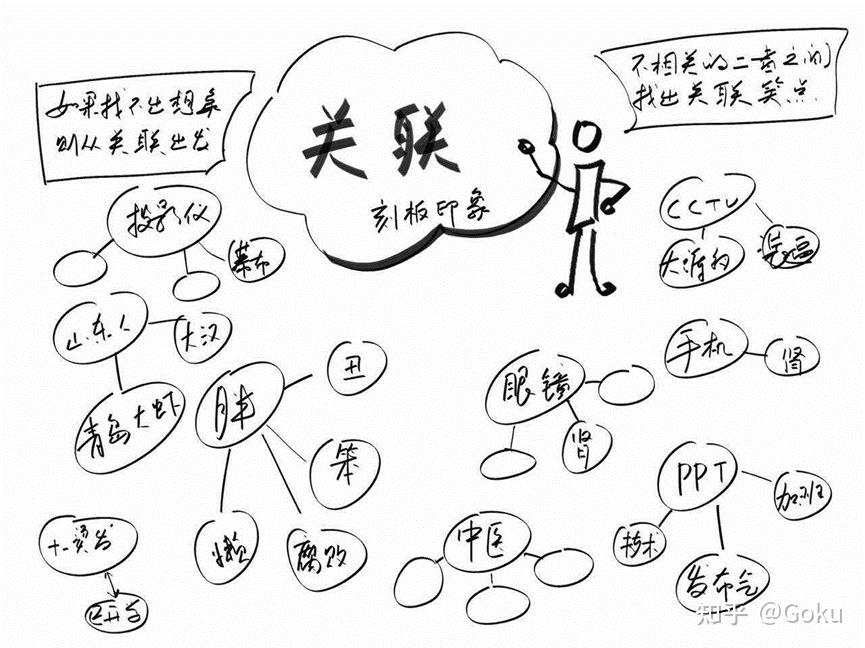 如果找不出想象
则从关联出发
关联
刻板印象
不相关的二者之间
找出关联笑点
投影仪
幕布
山东人
大汉
青岛大虾
胖
丑
笨
懒
腐败
眼镜
肾
中医
CCTV
手机
肾
PPT
加班
技术
知乎 @Goku